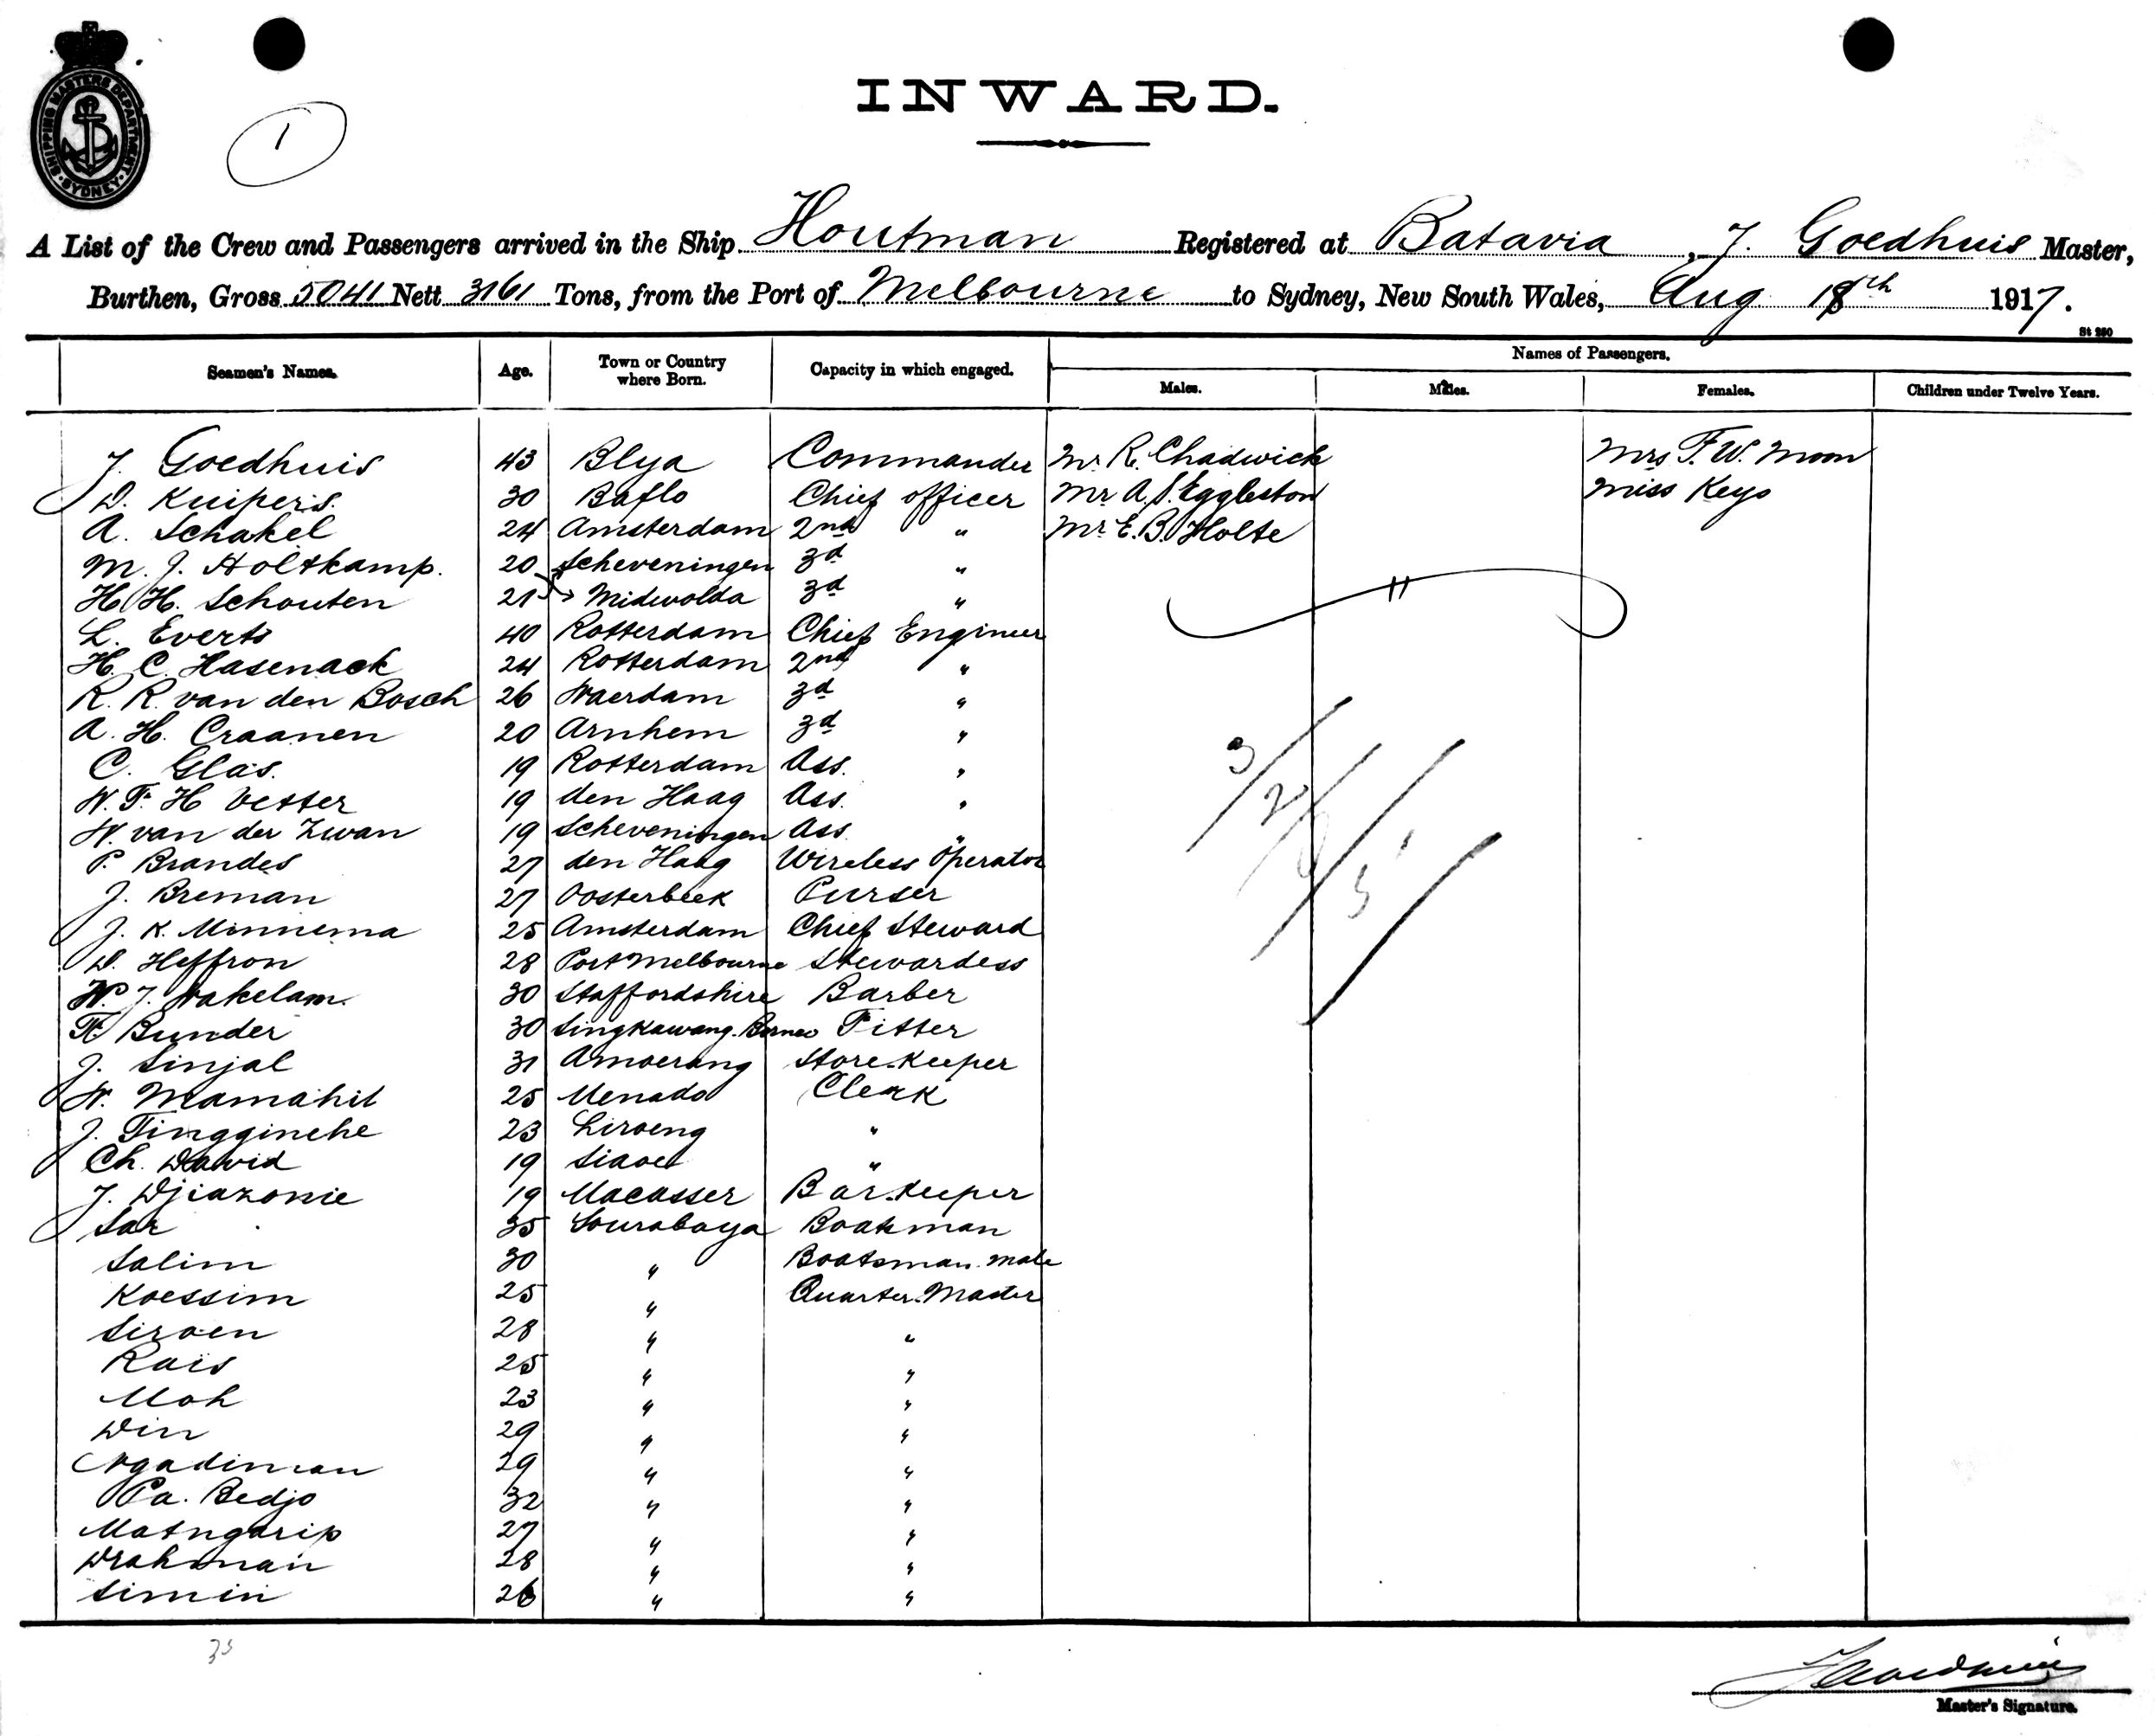 SHIPPING MASTERS DEPARTMENT · SYDNEY ·
1
INWARD.
A List of the Crew and Passengers arrived in the Ship Houtman Registered at Batavia, J. Goedhuis Master,
Burthen, Gross 5041 Nett 3161 Tons, from the Port of Melbourne to Sydney, New South Wales, Aug 18th 1917.
St 290
Seamen's Names. Age. Town or Country where Born. Capacity in which engaged. Names of Passengers.
Males. Males. Females. Children under Twelve Years.
J. Goedhuis 43 Blya Commander Mr R. Chadwick Mrs F. W. Moon
D. Kuipers. 30 Baflo Chief officer Mr A. S. Eggleston Miss Keys
A. Schakel 24 Amsterdam 2nd " Mr E. B. Holte
M. J. Holtkamp. 20 Scheveningen 3d "
H. H. Schouten 21 Midwolda 3d "
L. Everts 40 Rotterdam Chief Engineer
H. C. Hasenack 24 Rotterdam 2nd "
R. R. van den Bosch 26 Waerdam 3d "
A. H. Craanen 20 Arnhem 3d "
C. Glas. 19 Rotterdam Ass. "
W. F. H Vetter 19 den Haag Ass. "
W. van der Zwan 19 Scheveningen Ass. "
P. Brandes 27 den Haag Wireless Operator
J. Breman 27 Oosterbeek Purser
J. K. Minnema 25 Amsterdam Chief Steward
D. Heffron 28 Port Melbourne Stewardess
W. J. Wakelam. 30 Staffordshire Barber
F. Bunder 30 Singkawang. Borneo Fitter
J. Sinjal 31 Amoerang Store-Keeper
W. Mamahit 25 Menado Clerk
J. Tinggінehe 23 Liroeng "
Ch. David 19 Siaoe "
J. Djiazonie 19 Macasser Bar-Keeper
Sar 35 Sourabaya Boatman
Salim 30 " Boatsman. mate
Koessim 25 " Quarter. Master
Siroen 28 " "
Rais 25 " "
Moh 23 " "
Din 29 " "
Ngadiman 29 " "
Pa. Bedjo 32 " "
Matngarip 27 " "
Drahman 28 " "
Simin 26 " "
35
Master's Signature.